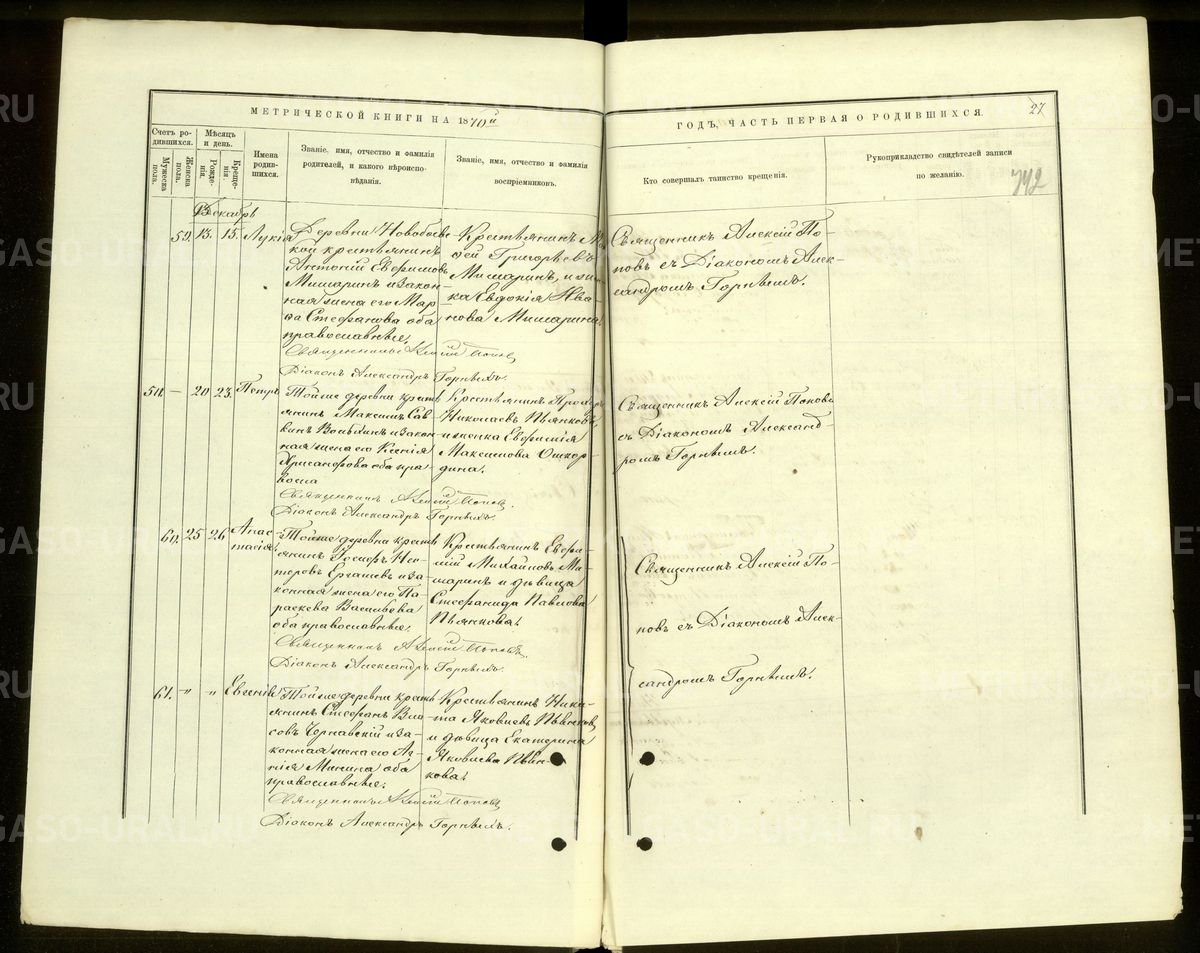 МЕТРИЧЕСКОЙ КНИГИ НА 18
ГОДЪ, ЧАСТЬ ПЕРВАЯ О РОДИВШИХСЯ.
27
Счетъ ро-
дившихся.
Мужеска
пола.
Женска
пола.
Мѣсяцъ
и день.
Рожде-
нія.
Креще-
нія.
Имена
родив-
шихся.
Званіе, имя, отчество и фамилія
родителей, и какого вѣроиспо-
вѣданія.
Званіе, имя, отчество и фамилія
воспріемниковъ.
Кто совершалъ таинство крещенія.
Рукоприкладство свидѣтелей записи
по желанію.
Декабрь
59. 13. 15. Лукія
Деревни
кой крестьянинъ
Антоній Евфимовъ
Мишаринъ и закон-
ная жена его Мар-
ѳа Стефанова оба
православные.
Священникъ Алексій Поповъ
Діаконъ Александръ Горныхъ.
Крестьянинъ
Григорьевъ
Мишаринъ, и
ка Евдокія Ива-
нова Мишарина.
Священникъ Алексій По-
повъ съ Діакономъ Алек-
сандромъ Горныхъ.
— 20 23. Петръ
Тойже деревни кресть-
янинъ Максимъ Сав-
винъ и закон-
ная жена его Ксенія
Хрисанфова оба пра-
восла
Священникъ Алексій Поповъ
Діаконъ Александръ Горныхъ.
Крестьянинъ
Николаевъ Пьянковъ,
и женка Евфимія
Максимова
Священникъ Алексій Поповъ
съ Діакономъ Александ-
ромъ Горныхъ.
60. 25 26 Анас-
тасія
Тойже деревни кресть-
янинъ Іосифъ Нес-
теровъ и за-
конная жена его Па-
раскева Васильева
оба православные.
Священникъ Алексій Поповъ
Діаконъ Александръ Горныхъ.
Крестьянинъ Евфи-
мій Михайловъ Ми-
шаринъ и дѣвица
Стефанида Павлова
Пьянкова.
Священникъ Алексій По-
повъ съ Діакономъ Алек-
сандромъ Горныхъ.
61. " " Евгенія
Тойже деревни кресть-
янинъ Стефанъ Вла-
совъ Чернавскій и за-
конная жена его
Минина оба
православные.
Священникъ Алексій Поповъ
Діаконъ Александръ Горныхъ.
Крестьянинъ Ники-
та Яковлевъ Пьянковъ
и дѣвица Екатерина
Яковлева Пьян-
кова.